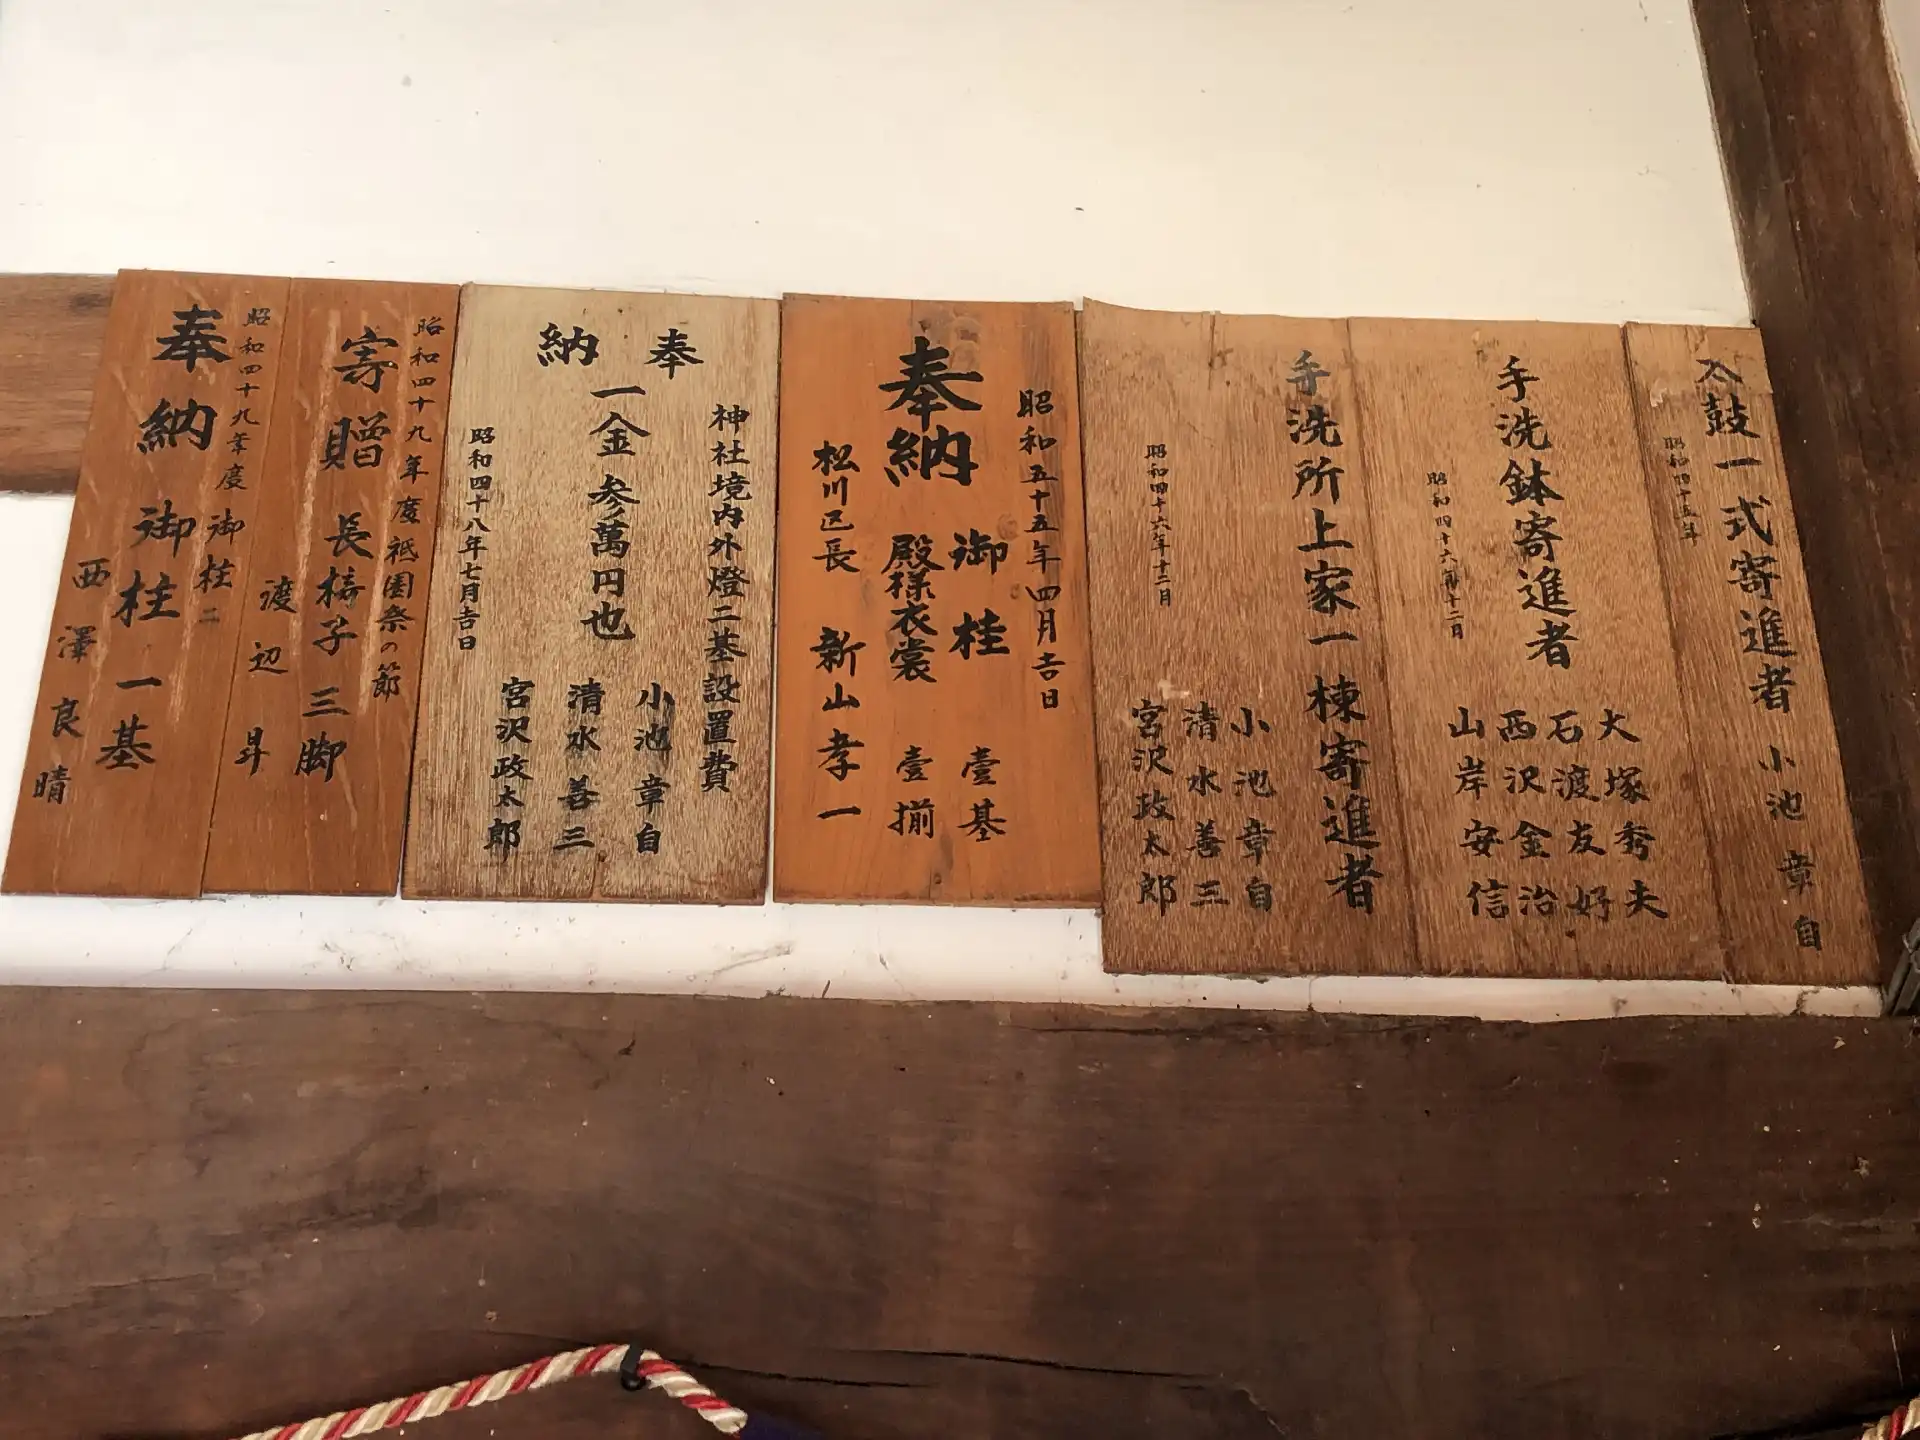 太鼓一式寄進者 小池章自
昭和四十五年
手洗鉢寄進者
昭和四十六年十二月
大塚秀夫
石渡友好
西沢金治
山岸安信
手洗所上家一棟寄進者
昭和四十六年十二月
小池章自
清水善三
宮沢政太郎
昭和五十五年四月吉日
奉納
御桂 壹基
殿様衣裳 壹揃
松川区長 新山孝一
奉納
神社境内外燈二基設置費
一金参萬円也
昭和四十八年七月吉日
小池章自
清水善三
宮沢政太郎
昭和四十九年度祗園祭の節
寄贈 長椅子 三脚
渡辺昇
昭和四十九年度御柱二
奉納 御柱一基
西澤良晴